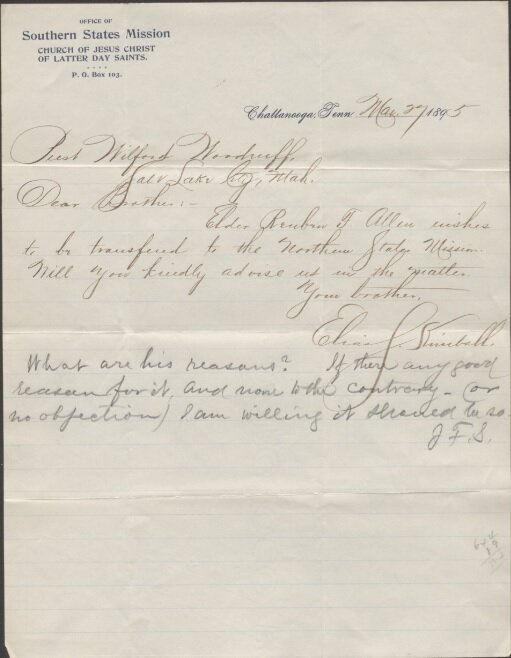 OFFICE OF
Southern States Mission
CHURCH OF JESUS CHRIST
OF LATTER DAY SAINTS.
P. O. Box 103.
Chattanooga, Tenn. Mar. 27 1895
Prest Wilford Woodruff,
Salt Lake City, Utah.
Dear Brother:-
Elder Reuben T. Allen wishes
to be transfered to the Northern States Mission.
Will you kindly advise us in the matter.
Your brother,
Elias S. Kimball.
What are his reasons? If there any good
reason for it, and none to the contrary - (or
no objection) I am willing it should be so.
J. F. S.